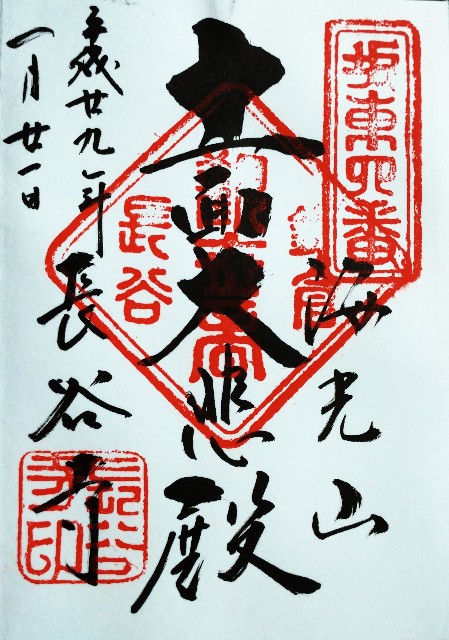 坂東四番
海光山
十一面大悲殿
長谷
平成廿九年
一月廿一日
長谷寺
長谷寺印